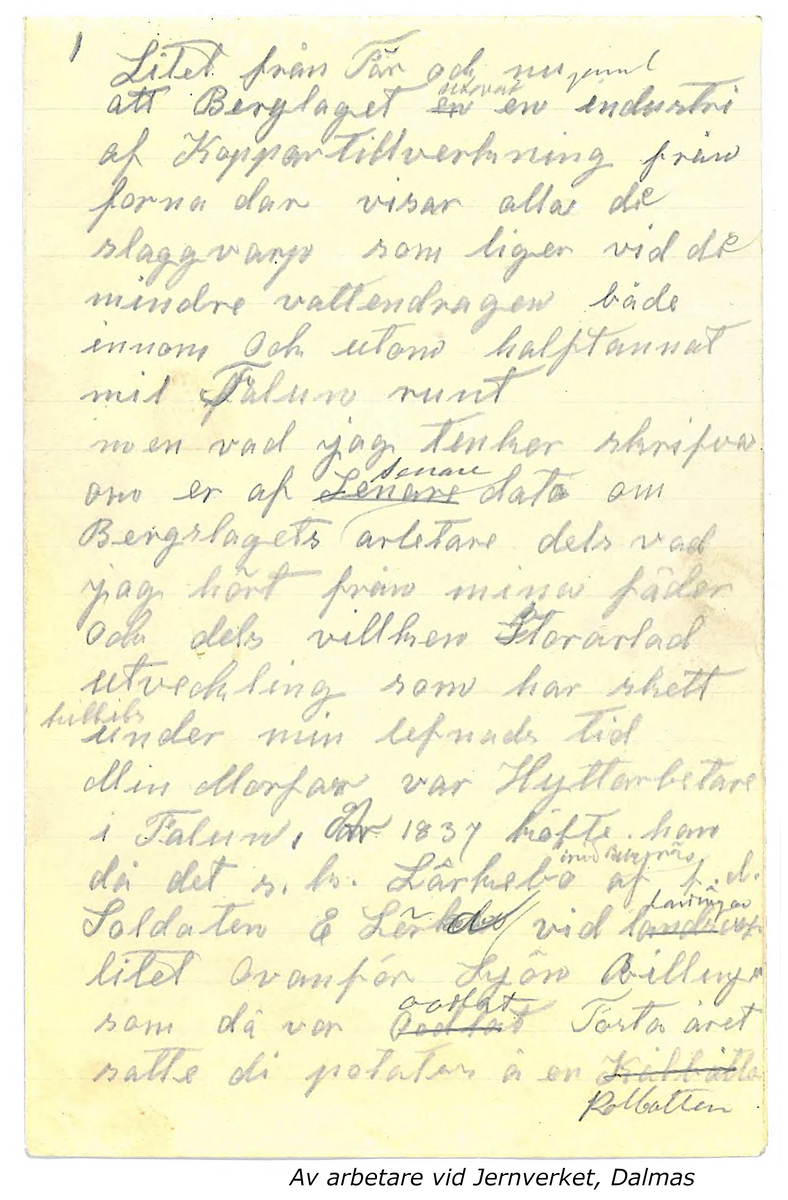 1
Litet från För och nu
att Berglaget en en industri
af Koppartillverkning från
forna dar visar alla de
slaggvarp som liger vid de
mindre vattendragen både
innom Och utom halftannat
mil Falun runt
men vad jag tenker skrifva
senare
om er af Senare data om
Bergslagets arbetare dels vad
jag hört från mina fäder
Och dels vilken Storartad
utveckling som har skett
under min lefnads tid
Min Morfar var Hyttarbetare
i Falun, År 1837 köfte han
då det s. k. Lärkebo af f. d.
Soldaten E Lärk vid
litet Ovanför Sjön
oodlat
som då var Oodlat Första året
satte di potates å en
Kolbotten
Av arbetare vid Jernverket, Dalmas